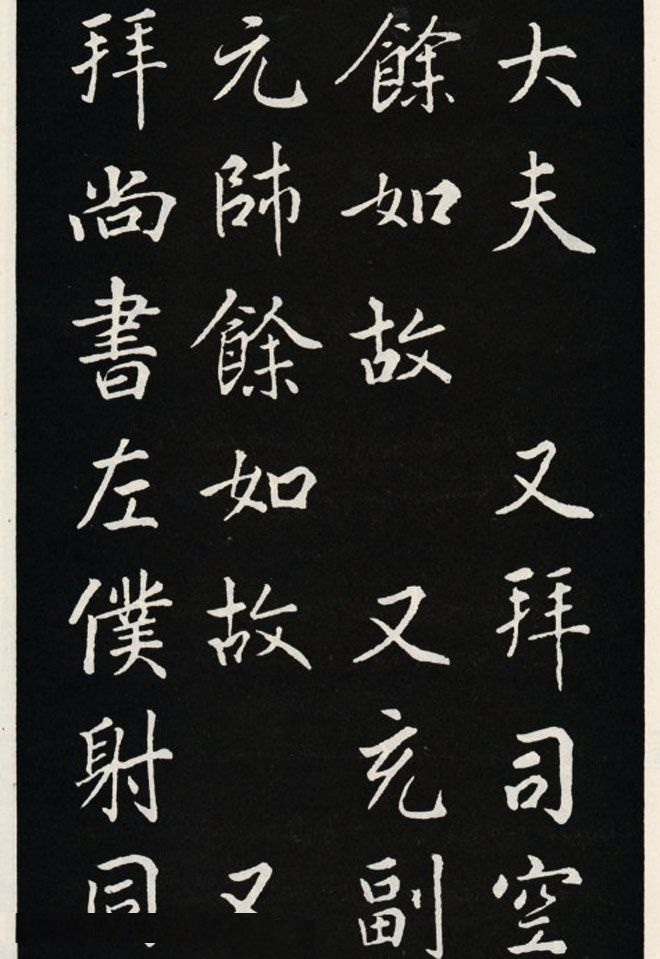 大夫　又拜司空
餘如故　又充副
元帥餘如故　又
拜尚書左僕射同